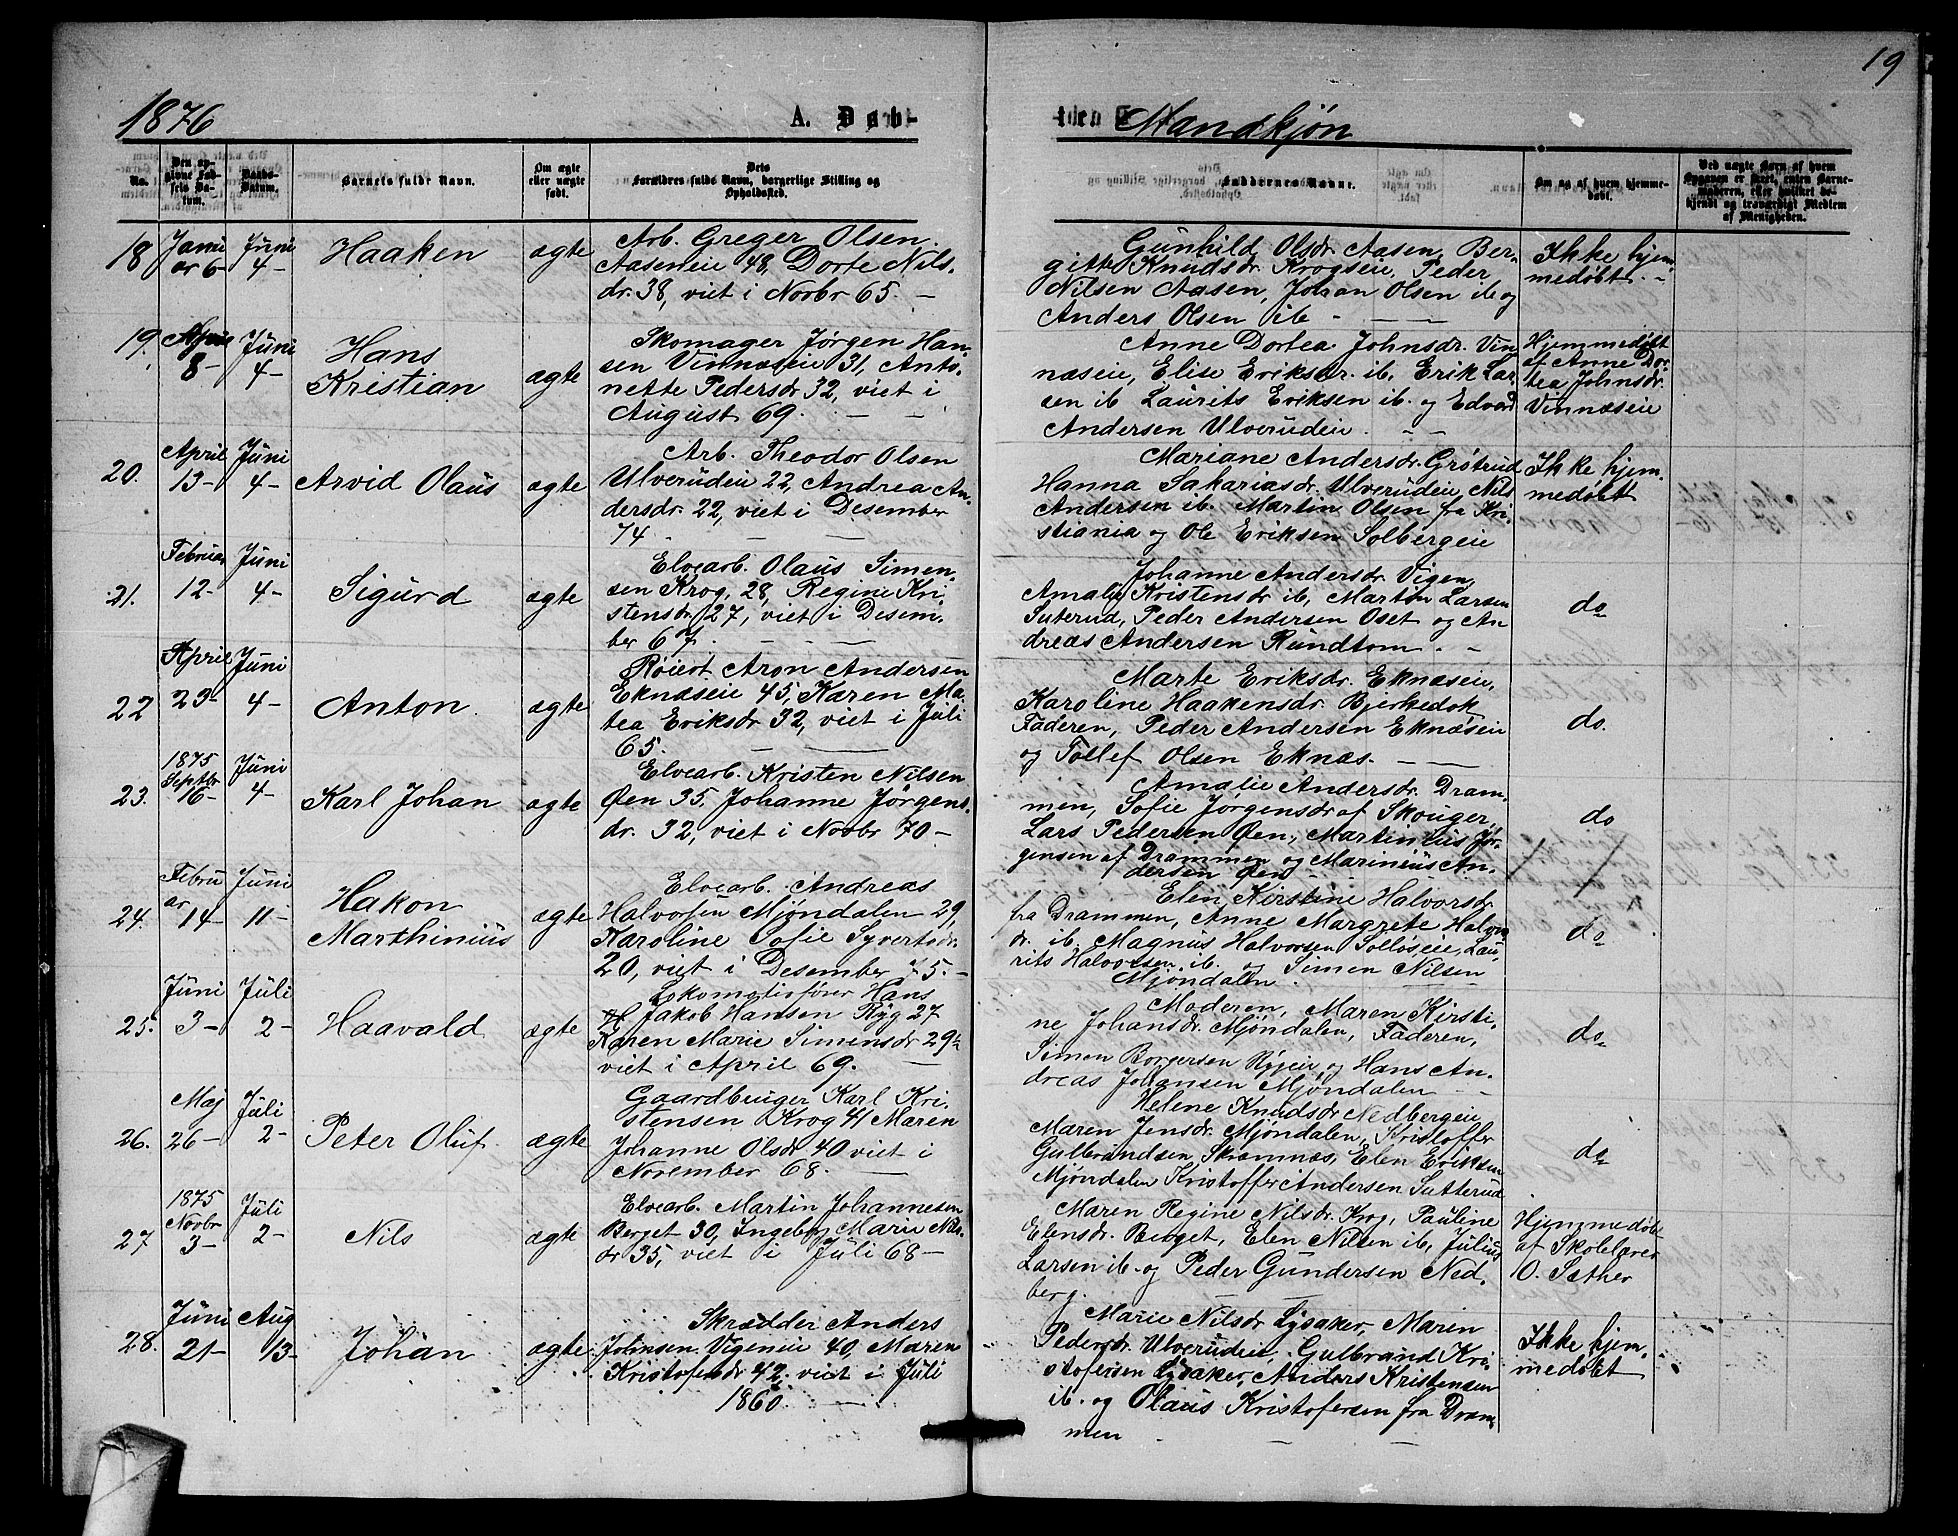 19
1876
A. Døb-
te.
Mandkjøn
No.
Den op-
givne Fød-
sels Da-
tum.
Daabs-
Datum.
Barnets fulde Navn.
Om ægte
eller uægte
født.
Dets
Forældres fulde Navn, borgerlige Stilling og
Opholdssted.
Faddernes Navne.
Om og af hvem hjemme-
døbt.
Ved uægte Børn af hvem
Opgaven er skeet, enten Barne-
moderen, eller hvilket be-
kjendt og troværdigt Medlem
af Menigheden.
18
Janu
ar 6-
Juni
4-
Haaken
ægte
Arb. Greger Olsen
Aaseneie 48, Dorte Nils-
dr. 38, viet i Novbr 65. —
Gunhild Olsdr Aasen, Ber-
gitte Knudsdr Krogseie, Peder
Nilsen Aasen, Johan Olsen ib og
Anders Olsen ib - — —
Ikke hjem-
medøbt. -
19.
April
8-
Juni
4-
Hans
Kristian
ægte
Skomager Jørgen Han-
sen Vinnæseie 31, Anto-
nette Pedersdr 32, viet i
August 69. — —
Anne Dortea Johnsdr. Vin-
næseie, Elise Eriksdr. ib. Erik Lar-
sen ib Laurits Eriksen ib. og Edvard
Andersen Ulverudeie. - —
Hjemmedøbt
af Anne Dor-
tea Johnsdr.
Vinnæseie
20.
April
13-
Juni
4-
Arvid Olaus
ægte
Arb. Theodor Olsen
Ulverudeie 22, Andrea An-
dersdr. 22, viet i Desember
74 - — —
Mariane Andersdr. Grøtrud
Hanna Sakariasdr. Ulverudeie, Nils
Andersen ib. Martin Olsen fra Kri-
stiania og Ole Eriksen Solbergeie
Ikke hjem-
medøbt
21.
Februar
12-
Juni
4-
Sigurd
ægte
Elvearb. Olaus Simen-
sen Krog, 28, Regine Kri-
stensdr 27, viet i Desem-
ber 67. - — —
Johanne Andersdr. Vigen,
Amalie Kristensdr ib, Martin Larsen
Suterud, Peder Andersen Oset og An
dreas Andersen Rundtom. -
do
22
April
23-
Juni
4-
Anton.
ægte
Røiert Aron Andersen
Eknæseie 45, Karen Ma-
tea Eriksdr 32, viet i Juli
65. — —
Marte Eriksdr. Eknæseie,
Karoline Haakensdr. Bjerkedok
Faderen, Peder Andersen Eknæseie
og Tollef Olsen Eknæs. - — —
do.
23.
1875
Septbr
16-
Juni
4-
Karl Johan
ægte
Elvearb. Kristen Nilsen
Øen 35, Johanne Jørgens-
dr. 32, viet i Novbr 70 —
Amalie Andersdr. Dram-
men, Sofie Jørgensdr af Skouger,
Lars Pedersen Øen, Martinius Jør-
gensen af Drammen og Marinius An-
dersen Øen - -
do
24.
Febru
ar
14-
Juni
11-
Hakon
Marthinius
ægte
Elvearb. Andreas
Halvorsen Mjøndalen 29,
Karoline Sofie Syvertsdr.
20, viet i Desember 75. —
Elen Kirstine Halvorsdr.
fra Drammen, Anne Margrete Halvors
dr. ib. Magnus Halvorsen Solløseie, Lau-
rits Halvorsen ib. og Simen Nilsen
Mjøndalen. - —
do
25.
Juni
3-
Juli
2-
Haavald
ægte
Lokomotivfører Hans
Jakob Hansen Ryg 27
Karen Marie Simensdr 29½
viet i April 69. —
Moderen, Maren Kirsti-
ne Johansdr. Mjøndalen, Faderen,
Simen Borgersen Rygeie og Hans An-
dreas Johansen Mjøndalen —
do
26.
Maj
26-
Juli
2-
Peter Oluf.
ægte
Gaardbruger Karl Kri-
stensen Krog 41 Maren
Johanne Olsdr 40 viet i
November 68. —
Helene Knudsdr Nedbergeie
Maren Jensdr. Mjøndalen, Kristoffer
Gulbrandsen Skramnæs, Elen Eriksen
Mjøndalen Kristoffer Andersen Sætterud
do
27
1875
Novbr
3-
Juli
2-
Nils
ægte
Elvearb. Martin Johannesen
Berget 30, Ingeborg Marie Nils
dr 35, viet i Juli 68 —
Maren Regine Nilsdr. Krog, Pauline
Elensdr. Berget, Elen Nilsen ib, Julius
Larsen ib. og Peder Gundersen Ned-
berg.
Hjemmedøbt
af Skolelærer
O. Sæther
28.
Juni
21-
Aug
13-
Johan
ægte
Skrædder Anders
Johnsen Vigeneie 40, Maren
Kristofersdr 42, viet i Juli
1860. —
Marie Nilsdr Lysaker, Maren
Pedersdr Ulverudeie, Gulbrand Kri-
stofersen Lysaker, Anders Kristensen
ib. og Olaus Kristofersen fra Dram-
men - — —
Ikke hjem-
medøbt